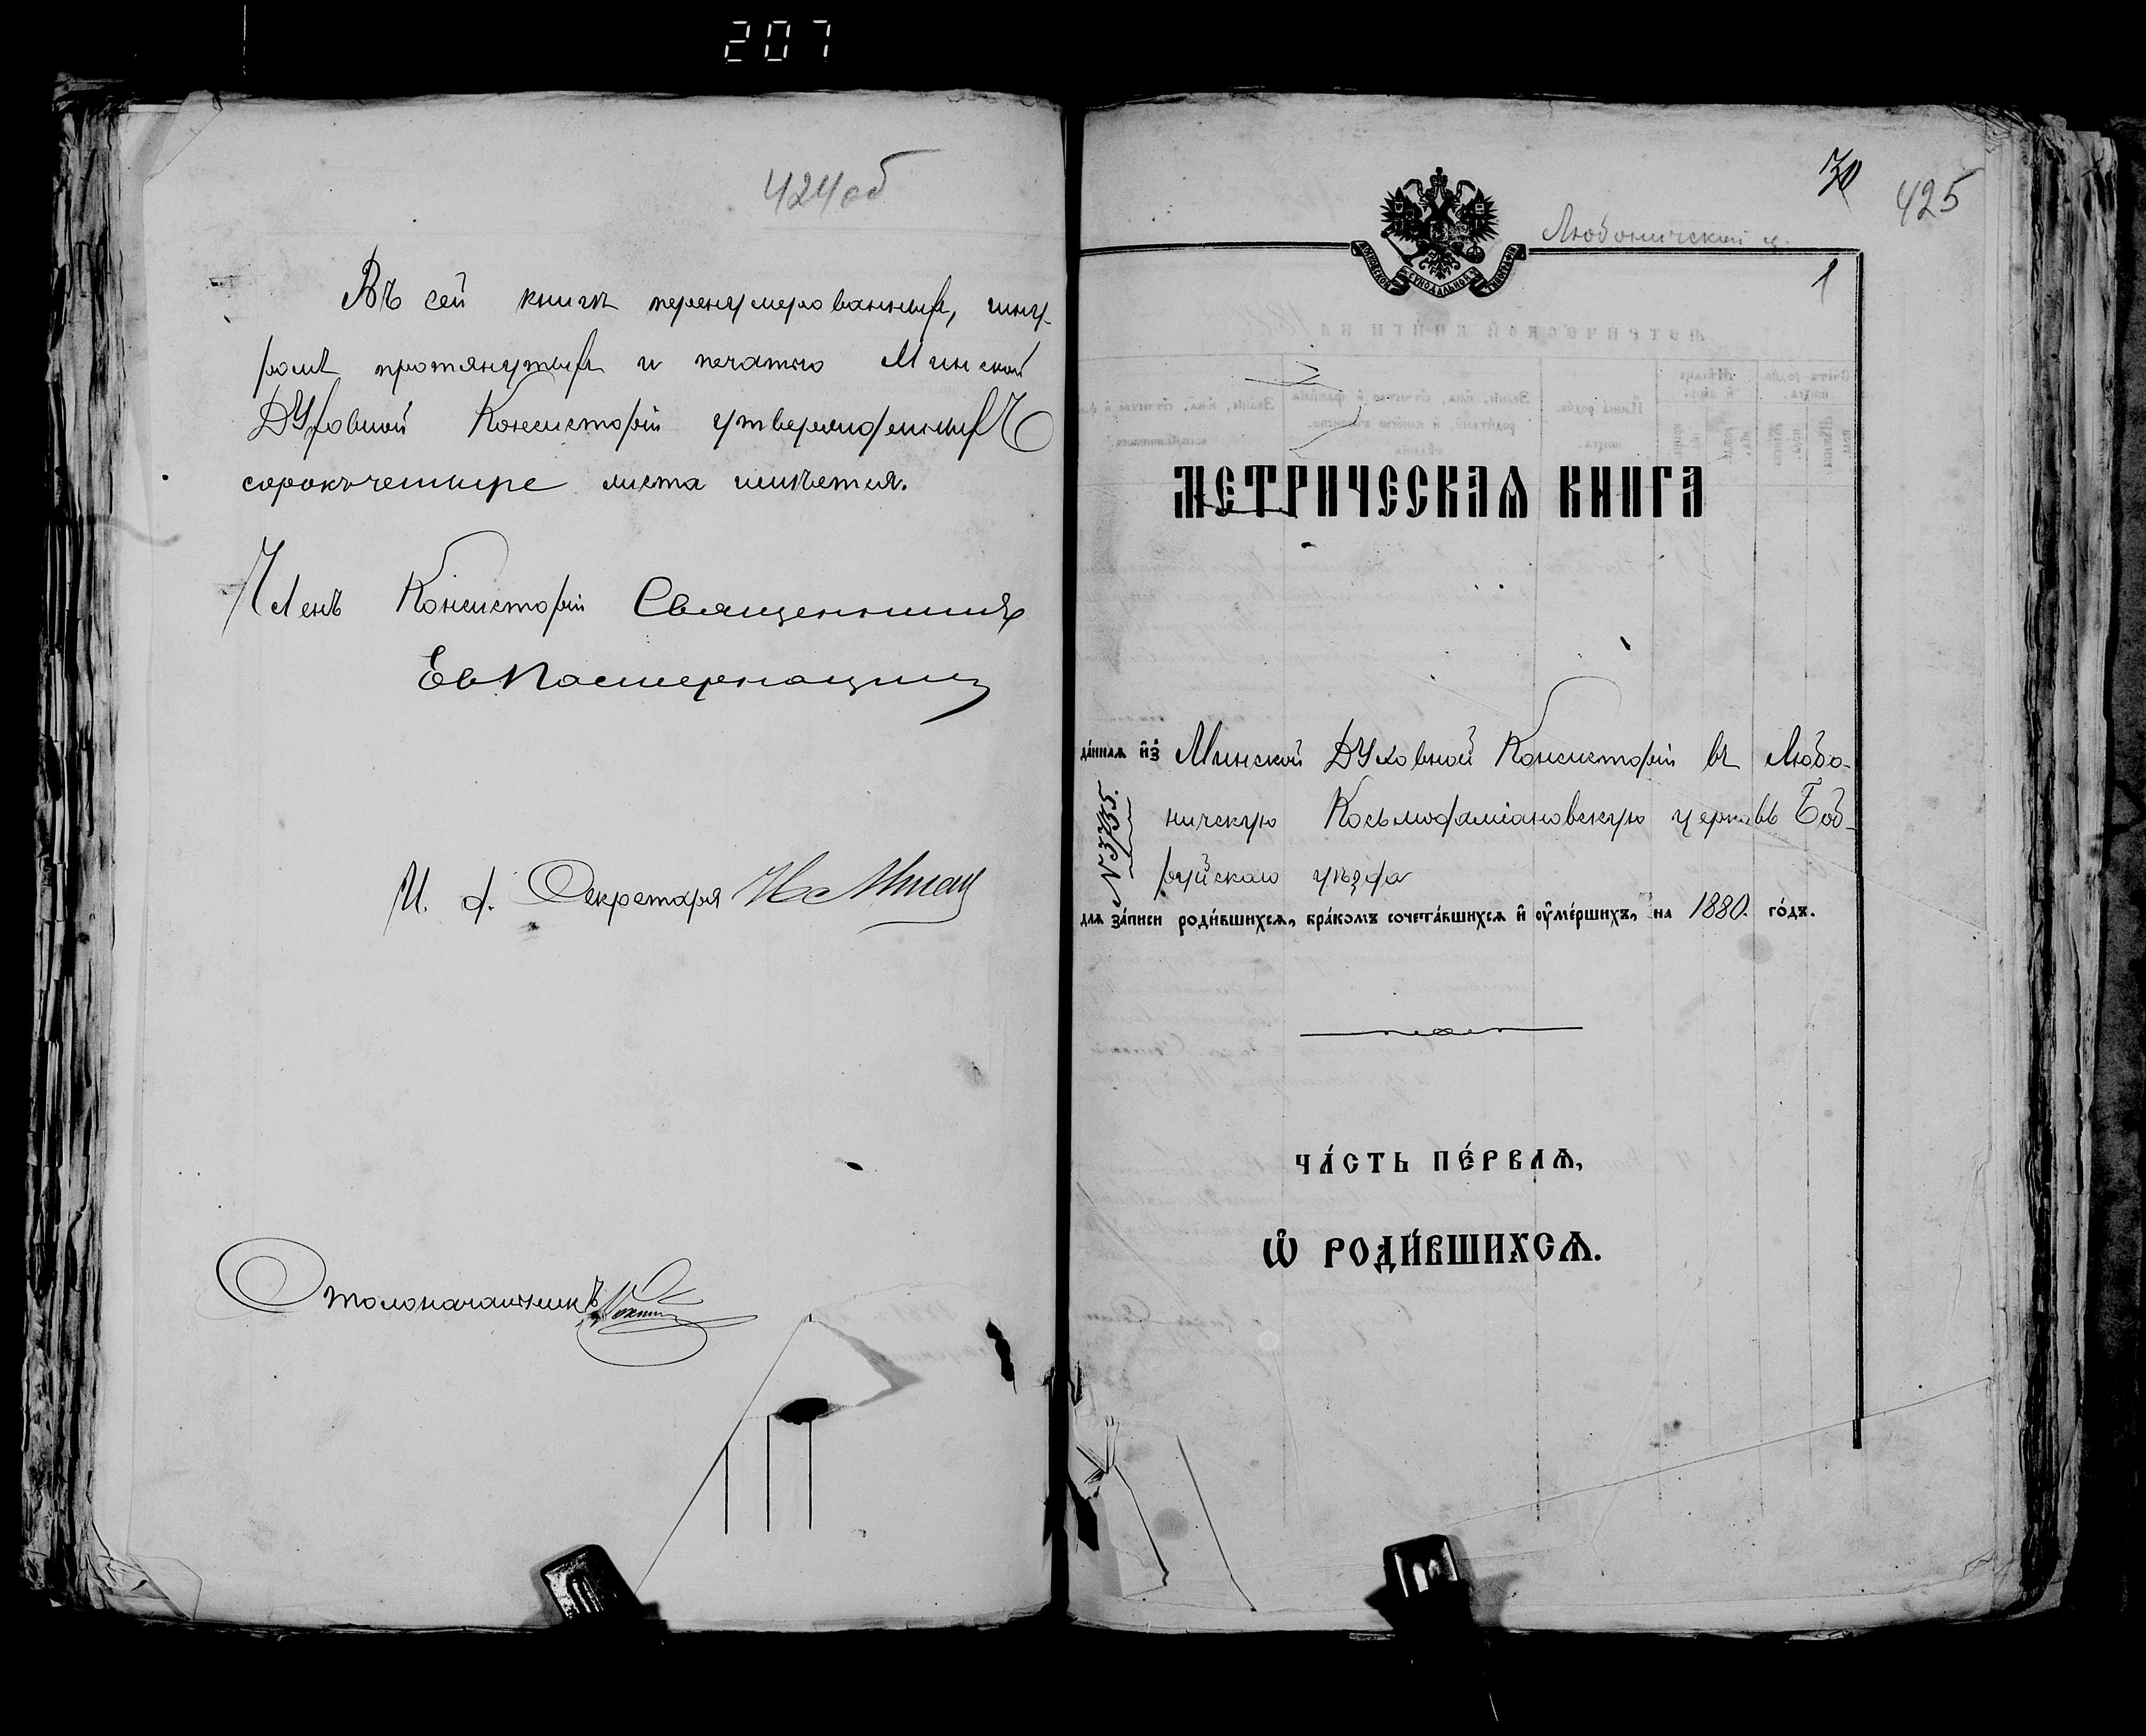 207
424об
Въ сей книгѣ перенумерованныхъ, шну-
ромъ протянутыхъ и печатью Минской
Духовной Консисторіи утвержденныхъ
сорокъ четыре листа имѣется.
Членъ Консисторіи Священникъ
И. д. Секретаря
Столоначальникъ
70
425
Любоничской ц.
1
МОСКОВСКОЙ СѴНОДАЛЬНОЙ ТИПОГРАФІИ
МЕТРИЧЕСКАѦ КНИГА
да́ннаѧ и҆з̾ Минской Духовной Консисторіи въ Любо-
ничскую Косьмодаміановскую церковь Боб-
руйскаго уѣзда
№ 3735.
для за́писи роди́вшихсѧ, бра́комъ сочета́вшихсѧ и҆ ᲂу҆ме́ршихъ, на 1880. го́дъ.
ЧА́СТЬ ПЕ́РВАѦ,
Ѽ РОДИ́ВШИХСѦ.